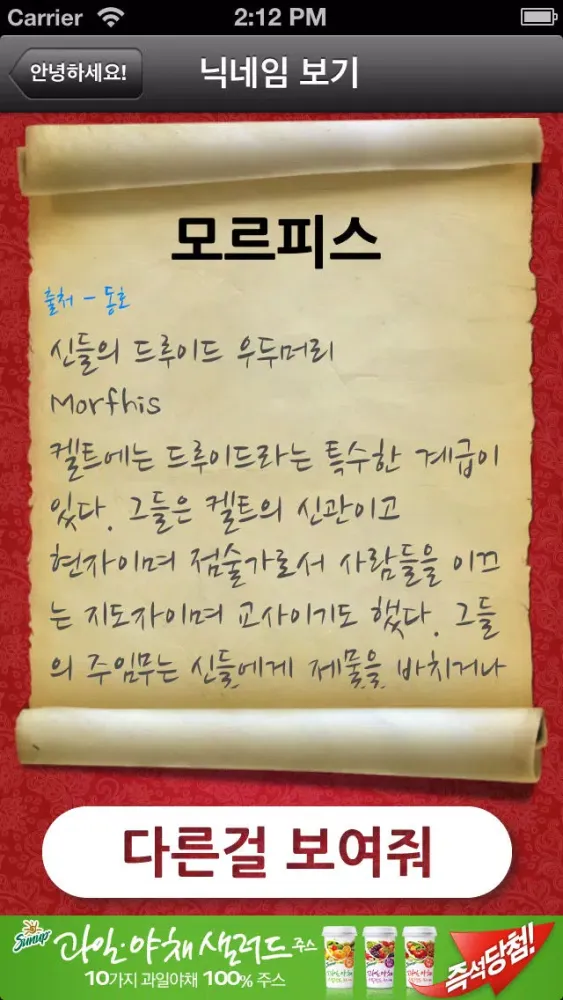 Carrier 2:12 PM
안녕하세요! 닉네임 보기
모르피스
출처 - 동호
신들의 드루이드 우두머리
Morfhis
켈트에는 드루이드라는 특수한 계급이
있다. 그들은 켈트의 신관이고
현자이며 점술가로서 사람들을 이끄
는 지도자이며 교사이기도 했다. 그들
의 주임무는 신들에게 제물을 바치거나
다른걸 보여줘
Sunup 과일·야채 샐러드 주스 즉석당첨!
10가지 과일야채 100% 주스